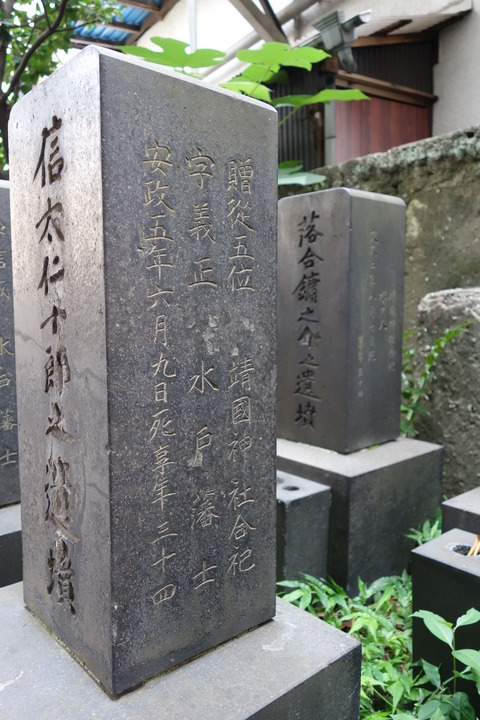 信太仁十郎之遺墳
贈從五位 靖國神社合祀
字義正 水戶藩士
安政五年六月九日死享年三十四
落合鏞之介之遺墳
水戸藩士